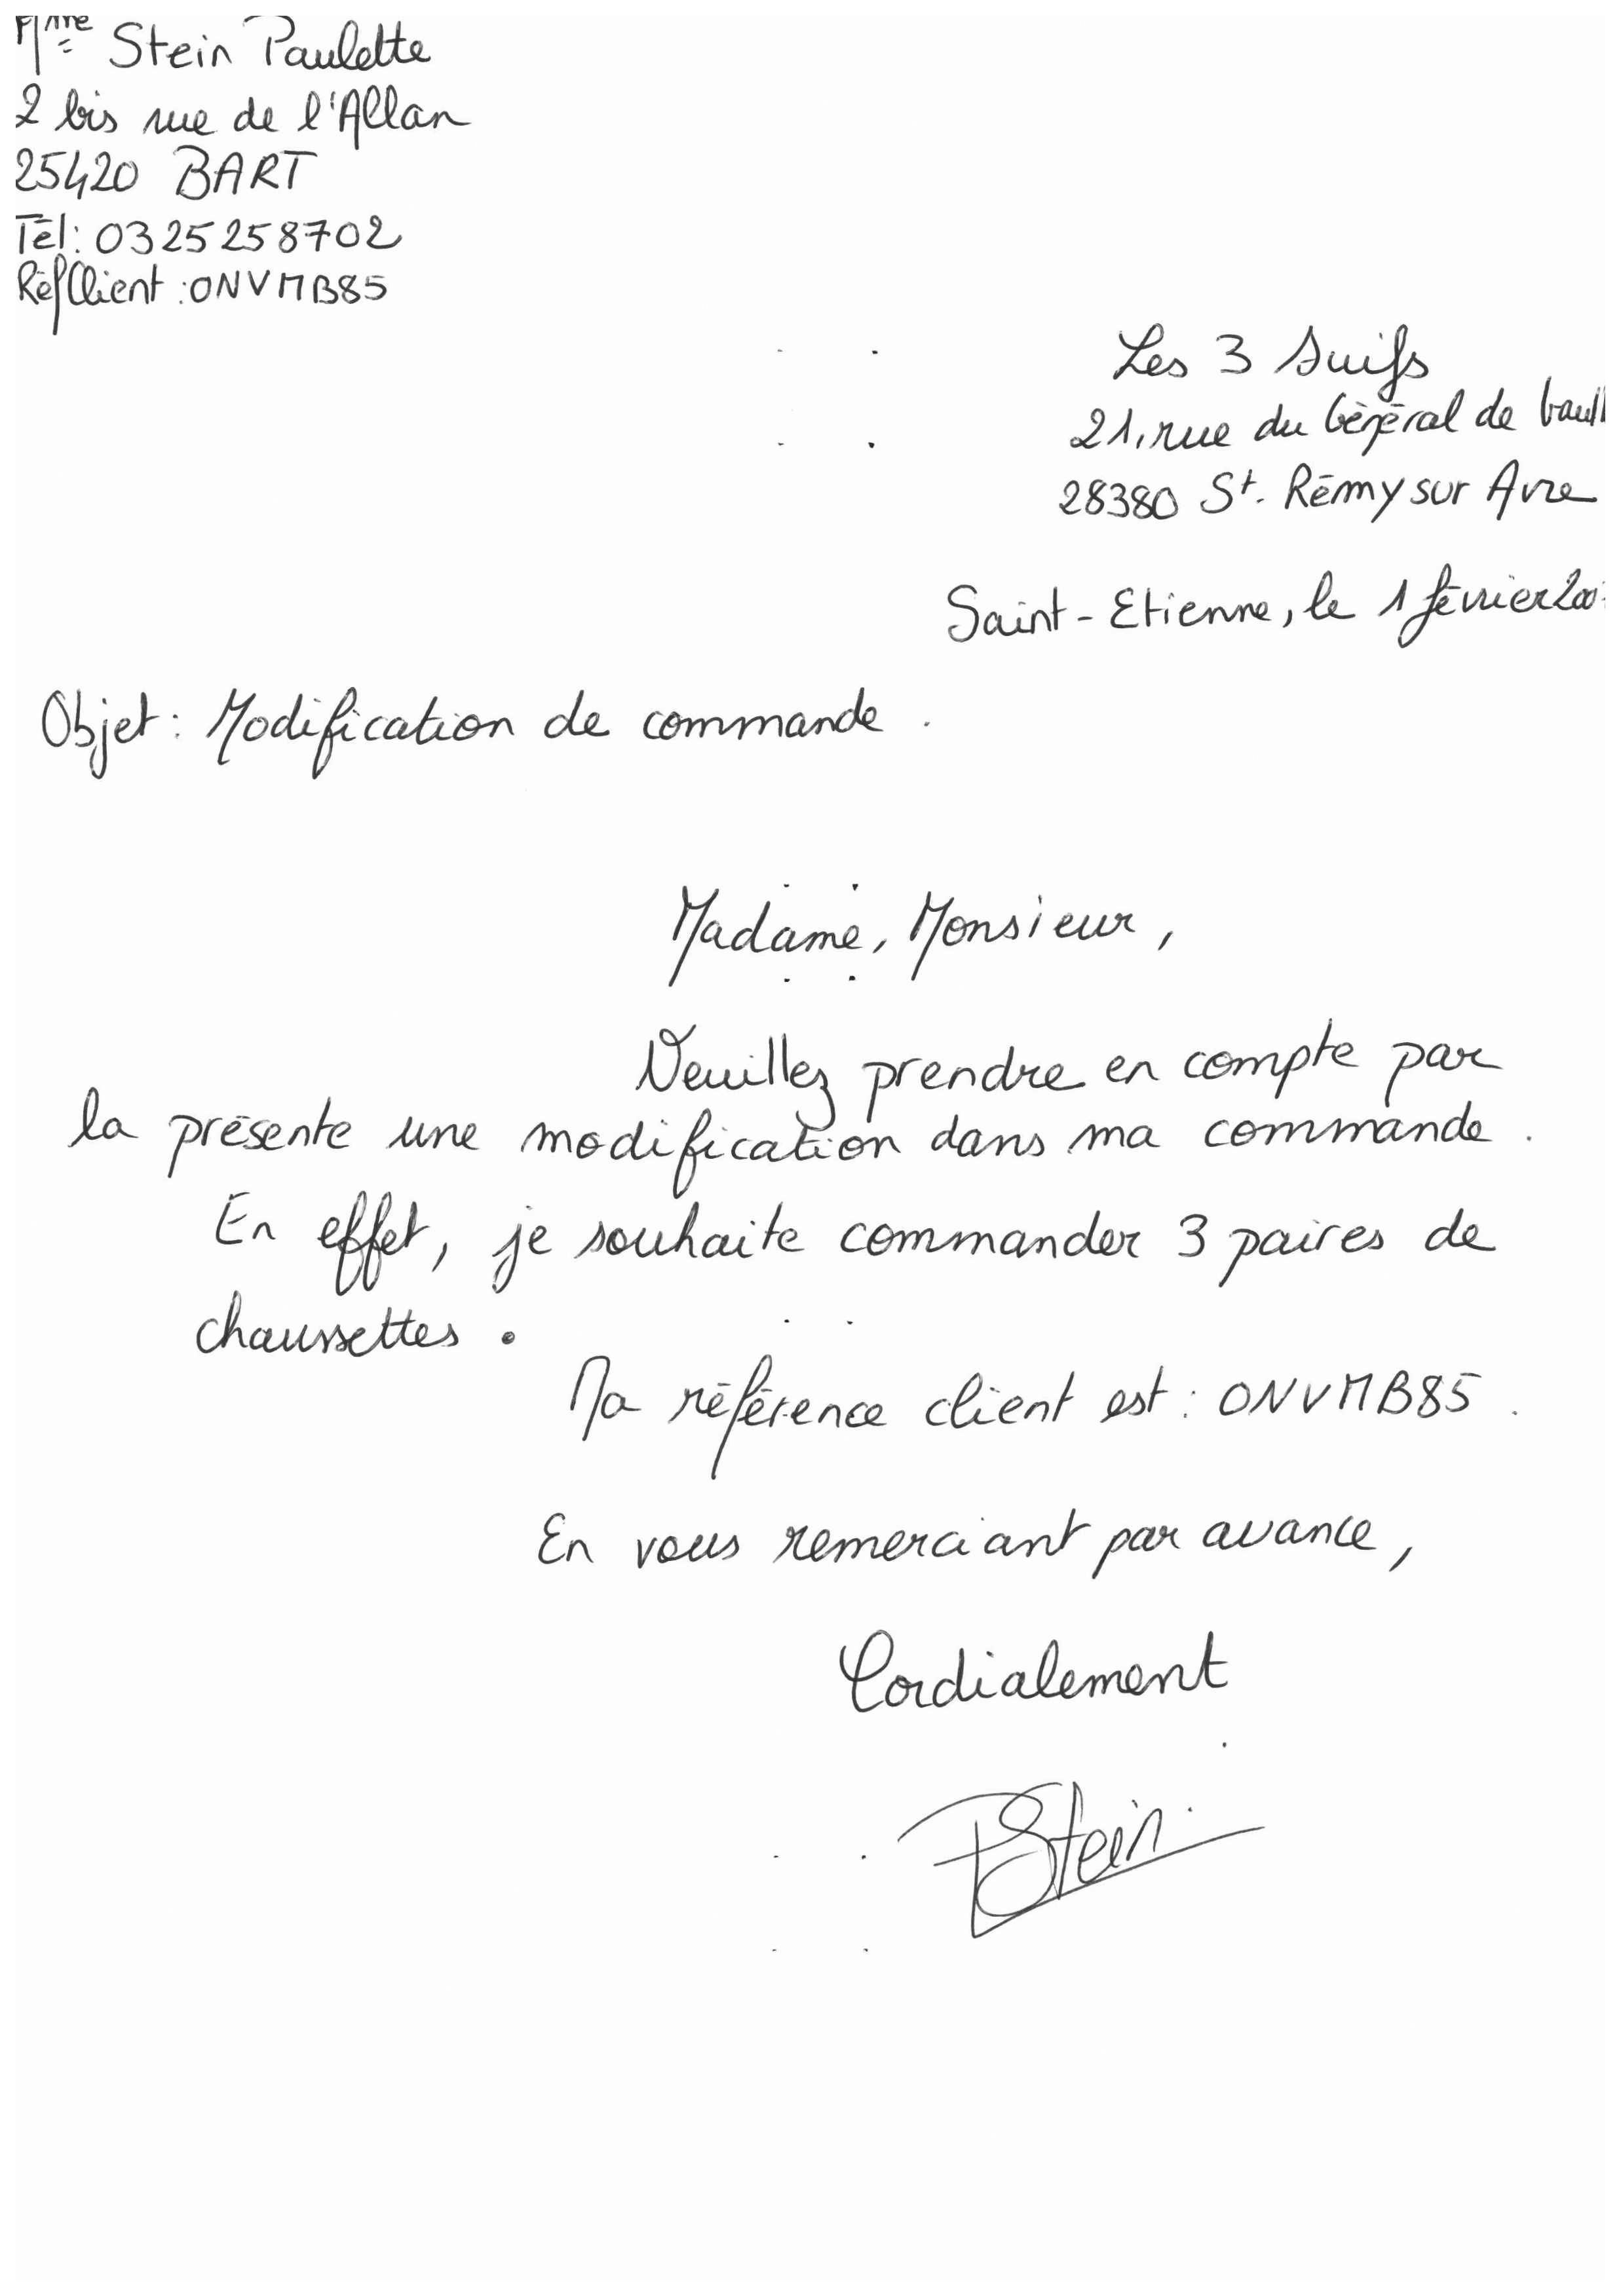 Mme Stein Paulette
2 bis rue de l'Allan
25420 BART
Tél: 0325258702
Réf Client : ONVMB85
Les 3 Suifs
21, rue du Général de Gaull
28380 St. Rémy sur Avre
Saint-Etienne, le 1 février 200
Objet : Modification de commande.
Madame, Monsieur,
Veuillez prendre en compte par
la présente une modification dans ma commande.
En effet, je souhaite commander 3 paires de
chaussettes.
Ma référence client est : ONVMB85.
En vous remerciant par avance,
Cordialement
PStein